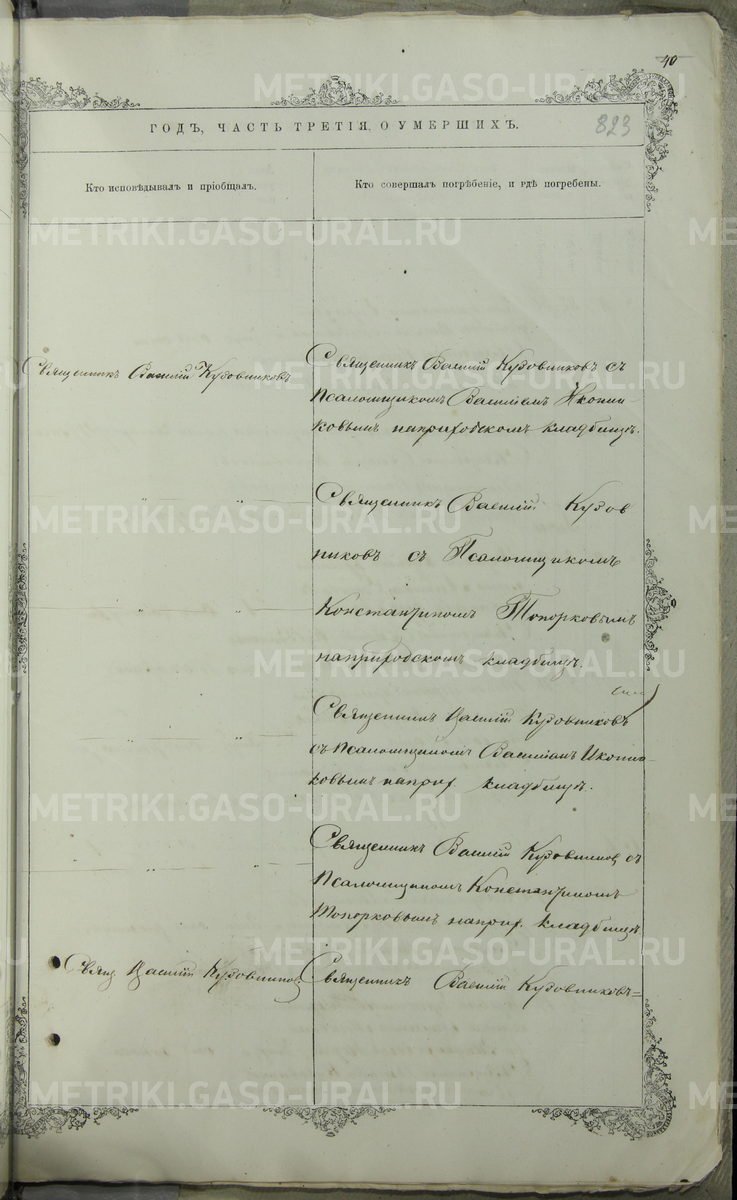 40
823
ГОДЪ, ЧАСТЬ ТРЕТІЯ, О УМЕРШИХЪ.
Кто исповѣдывалъ и пріобщалъ.
Кто совершалъ погрѣбеніе, и гдѣ погребены.
Священникъ Василій Кудовниковъ
Священникъ Василій Кудовниковъ съ
Псаломщикомъ Василіемъ Иконни-
ковымъ наприходскомъ кладбищѣ.
" "
Священникъ Василій Кудов
никовъ съ Псаломщикомъ
" "
Константиномъ Топорковымъ
наприходскомъ кладбищѣ.
Священникъ Василій Кудовниковъ
" "
съ Псаломщикомъ Василіемъ Иконни-
ковымъ наприх кладбищѣ.
Священникъ Василій Кудовников съ
" "
Псаломщикомъ Константиномъ
Топорковымъ наприх. кладбищѣ
Свящ Василій Кудовников
Священникъ Василій Кудовниковъ=
METRIKI.GASO-URAL.RU